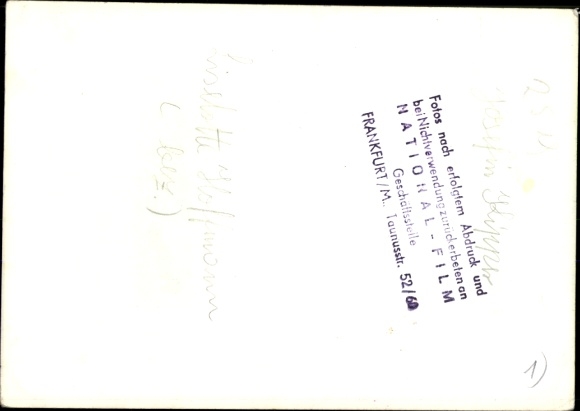 Fotos nach erfolgtem Abdruck und
bei Nichtverwendung zurückerbeten an
NATIONAL-FILM
Geschäftsstelle
FRANKFURT/M., Taunusstr. 52/60
Josefin Kipper
Liselotte Hoffmann
1)